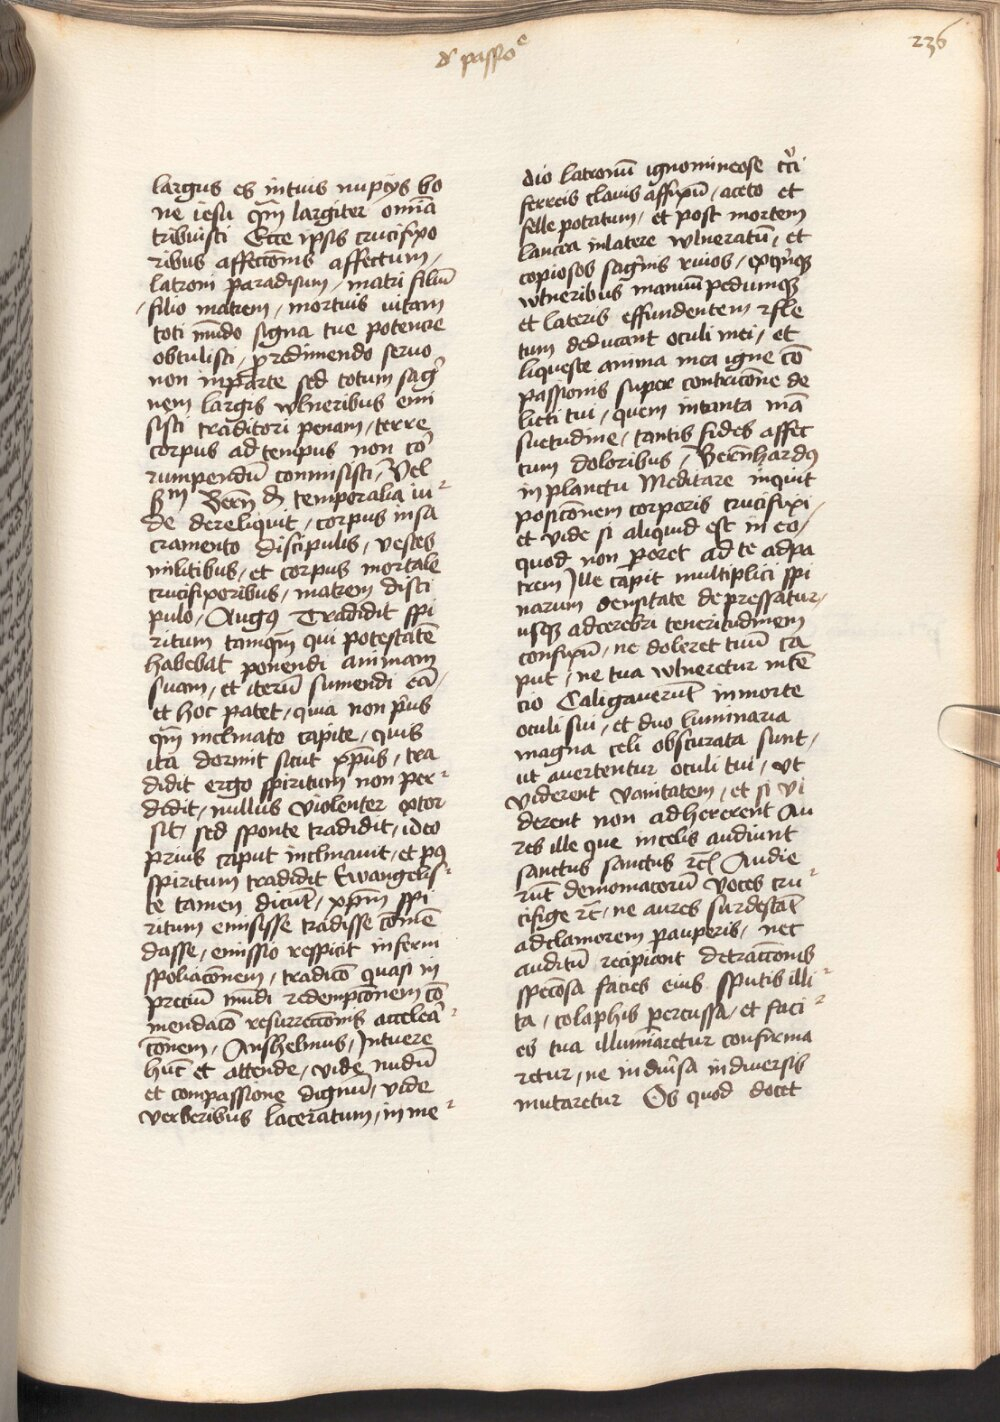 dˢ passōᵉ
236
largus es in tuis nupcijs bo
ne iesu qm̄ largiter om̄ia
tribuisti Ecce ipsis crucifixo
ribus affectionis affectum /
latroni paradisum / matri filiū
/ filio matrem / mortuis uitam
toti mūdo signa tue potencie
obtulisti / p redimendo seruo
non in parte sed totum sagʼ
nem largis wlneribus emi
sisti traditori penam / terre
corpus ad tempus non cōʳ
rumpendū commisisti / Vel
sᵐ Bern̄ d temporalia iu
de dereliquit / corpus in sa
cramento discipulis / vestes
militibus / et corpus mortale
crucifixoribus / matrem disci
pulo / Augꝰ Tradidit spi
ritum tamqm̄ qui potestatē
habebat ponendi animam
suam / et iterū sumendi eā /
et hoc patet / quia non pʼus
qm̄ inclinato capite / quis
ita dormit sicut xp̄us / tra
didit ergo spiritum non per
didit / nullus violenter extor
sit / sed sponte tradidit / ideo
prius caput inclinauit / et pꝰ
spiritum tradidit Ewangelis
te tamen dicūt / xp̄m spi
ritum emisisse tradisse cōmē
dasse / emissio respicit inferni
spoliacōnem / tradicō quasi in
preciū mūdi redempcōnem cō
mendacō resurrectionis acceleā
cōnem / Anshelmus / Intuere
hūc et attende / vide nudū
et compassione dignū / vide
verberibus laceratum / in me
dio latronū ignominose cʼci
ferreis clauis affixū / aceto et
felle potatum / et post mortem
lancea in latere wlneratū / et
copiosos sagʼnis riuos / ex qʼnqꝫ
wlneribus manuū pedumqꝫ
et lateris effundentem / fle
tum deducant oculi mei / et
liqueste anima mea igne cō
passionis super contricōne de
licti tui / quem in tanta mā
suetudine / tantis fides affec
tum doloribus / Bernhardꝰ
in planctu Meditare inquit
posicōnem corporis crucifixi /
et vide si aliquid est in eo /
quod non p oret ad te ad pa
trem Ille caput multiplici spi
narum densitate depressatur /
usqꝫ ad cerebri teneritudinem
confixū / ne doleret tuū ca
put / ne tua wlneretur intē
cio Caligauerūt in morte
oculi sui / et duo luminaria
magna celi obscurata sunt /
ut auertentur oculi tui / vt
viderent vanitatem / et si vi
derent non adhererent Au
res ille que in celis audiunt
sanctus sanctus rc̄ Audie
rūt demoniacorū voces cru
cifige rc̄ / ne aures surdescāt
ad clamorem pauperis / nec
auditū recipiant detractionis
specōsa facies eius sputis illi
ta / colaphis percussa / et faci
es tua illuminaretur confirma
retur / ne in diuʼsa in diuersis
mutaretur Os quod docet